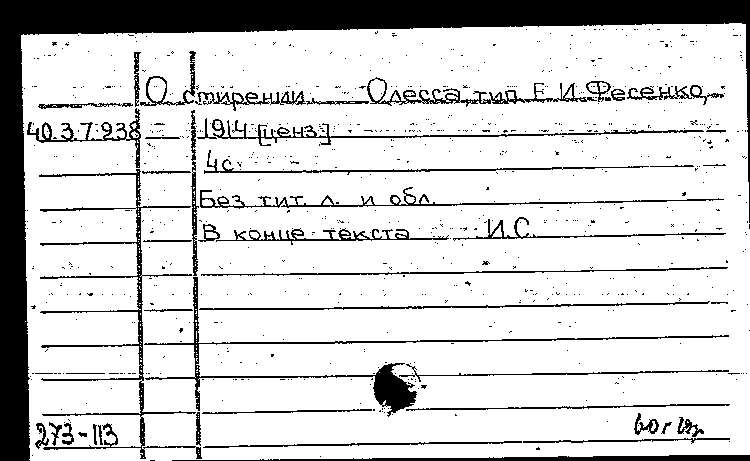 О стирении. Одесса, тип. Е.И.Фесенко,
40.3.7.938 1914 [ценз.]
4с.
Без тит. л. и обл.
В конце текста И.С.
273-113